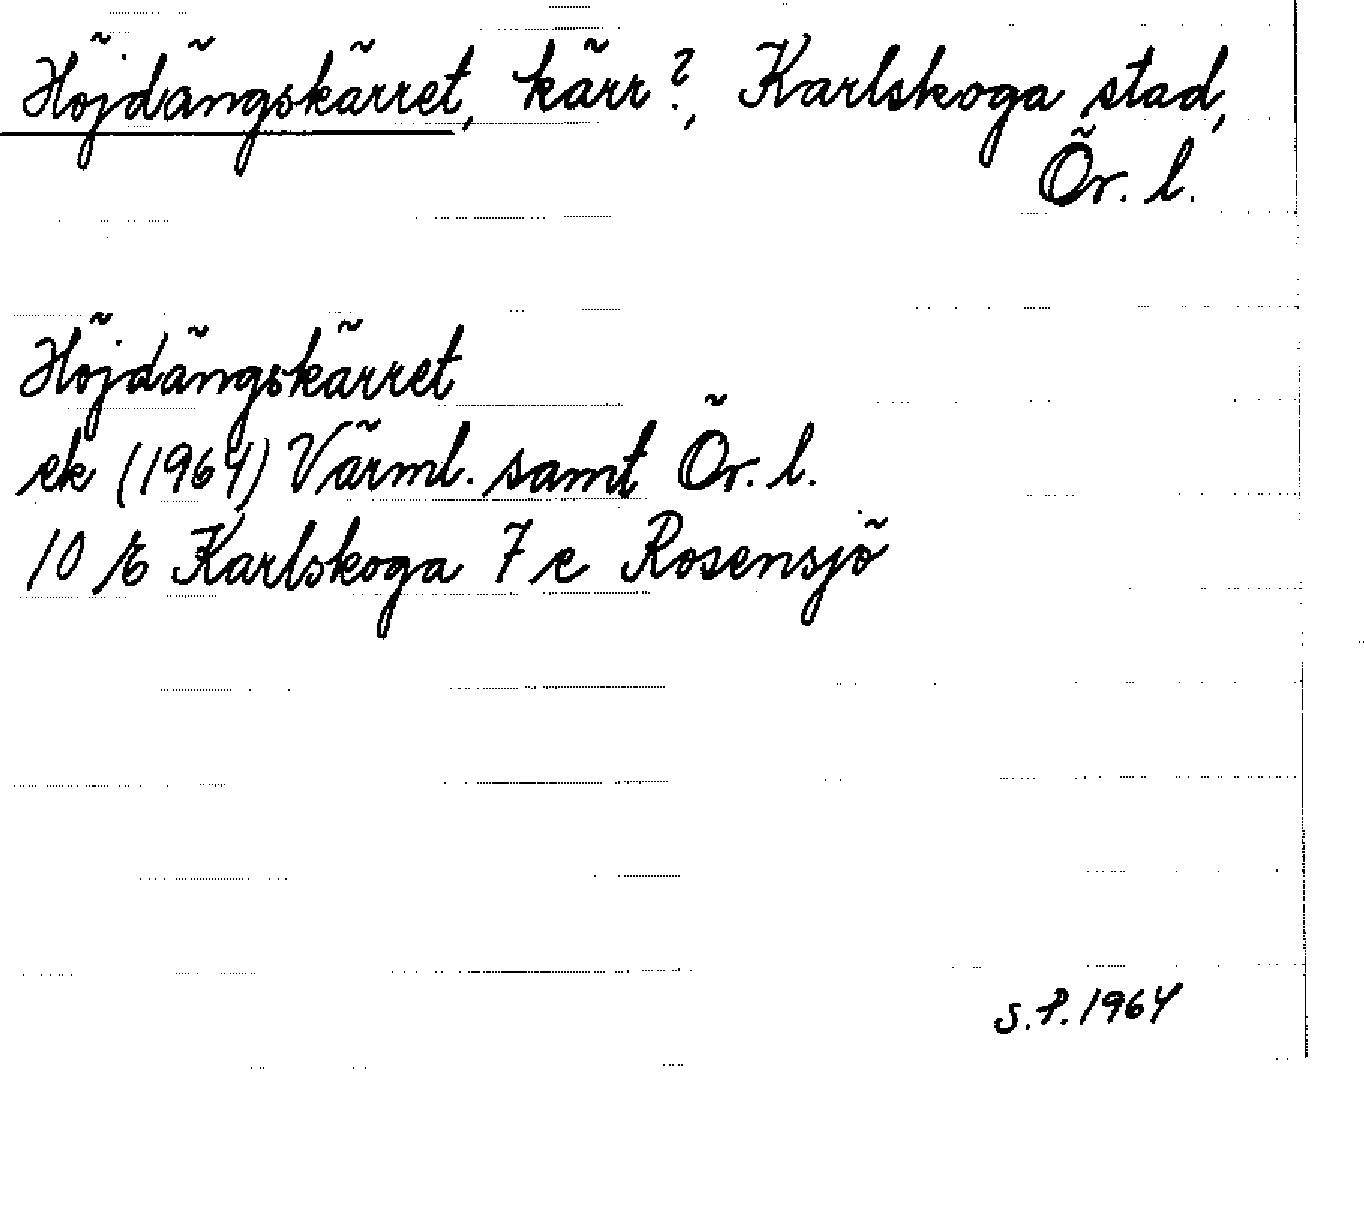 Höjdängskärret, kärr?, Karlskoga stad,
Ör. l.
Höjdängskärret
ek (1964) Värml. samt Ör. l.
10 E Karlskoga 7 e Rosensjö
S.P. 1964